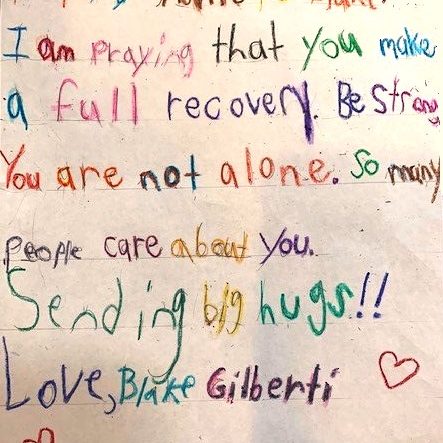 I am praying that you make
a full recovery. Be strong
You are not alone. So many
people care about you.
Sending big hugs!!
Love, Blake Gilberti